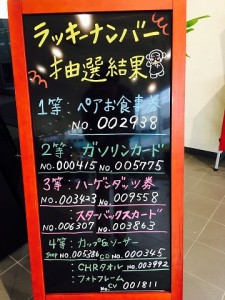 ラッキーナンバー
抽選結果
1等：ペアお食事券
NO.002938
2等：ガソリンカード
NO.000415 NO.005775
3等：ハーゲンダッツ券
NO.003423 NO.009558
：スターバックスカード
NO.006307 NO.003863
4等：カップ&ソーサー
NO.005386 NO.000345
：CHRタオル NO.003992
：フォトフレーム
NO.001811